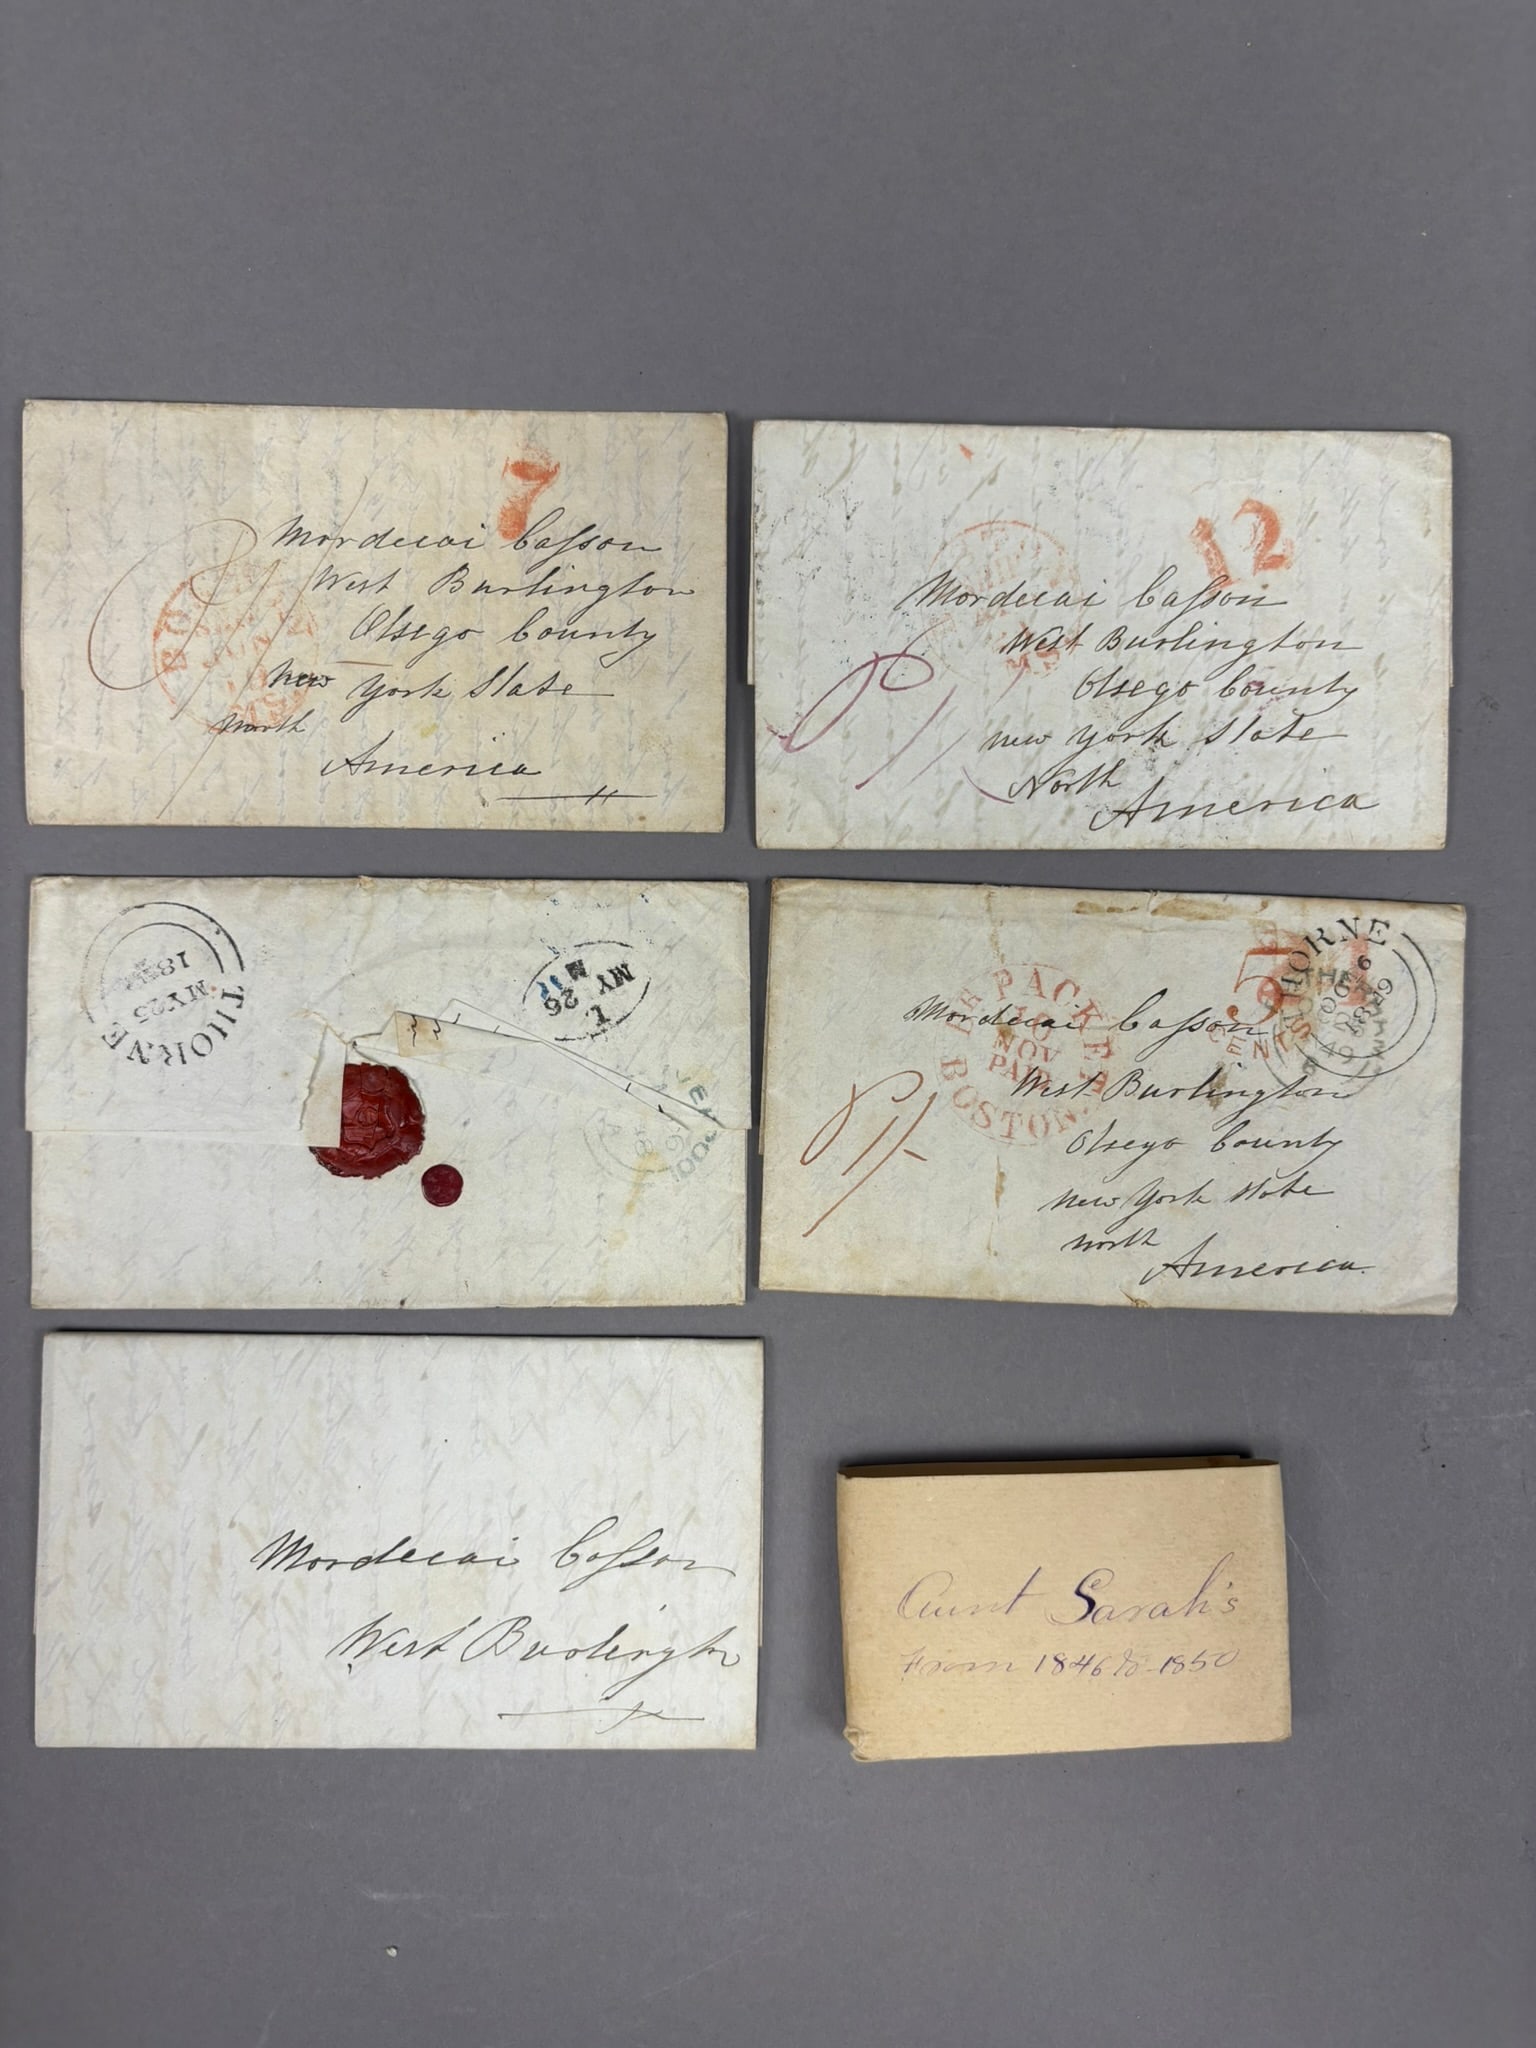 7
Mordecai Casson
West Burlington
Otsego County
New York State
North
America
12
Mordecai Casson
West Burlington
Otsego County
New York State
North
America
THORNE
MY 25
L
MY 26
PACKET
BOSTON
10
NOV
PAID
5
CENTS
THORNE
OC 26
1849
Mordecai Casson
West Burlington
Otsego County
New York State
North
America
Mordecai Casson
West Burlington
Aunt Sarah's
From 1846 to 1850